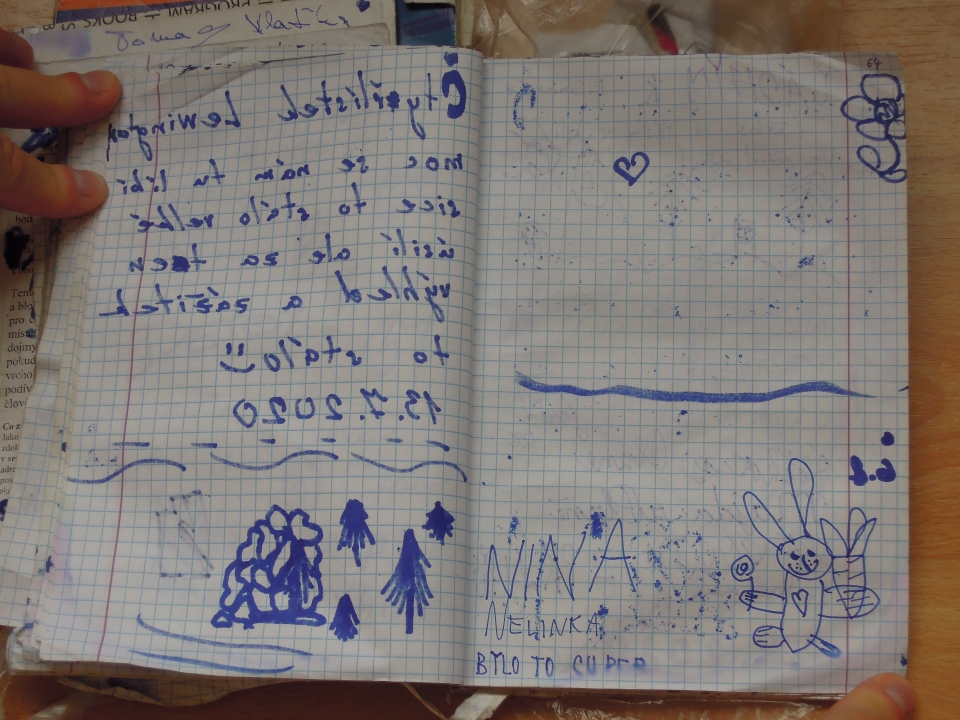 PROGRAM – BOOKS
Čtyřlístek
moc se nám tu líbí
sice to stálo velké
úsilí ale za ten
výhled a zážitek
to stálo
13.7.2020
pro
dojmy
pokud
Co z
64
NINA
NELINKA
BYLO TO